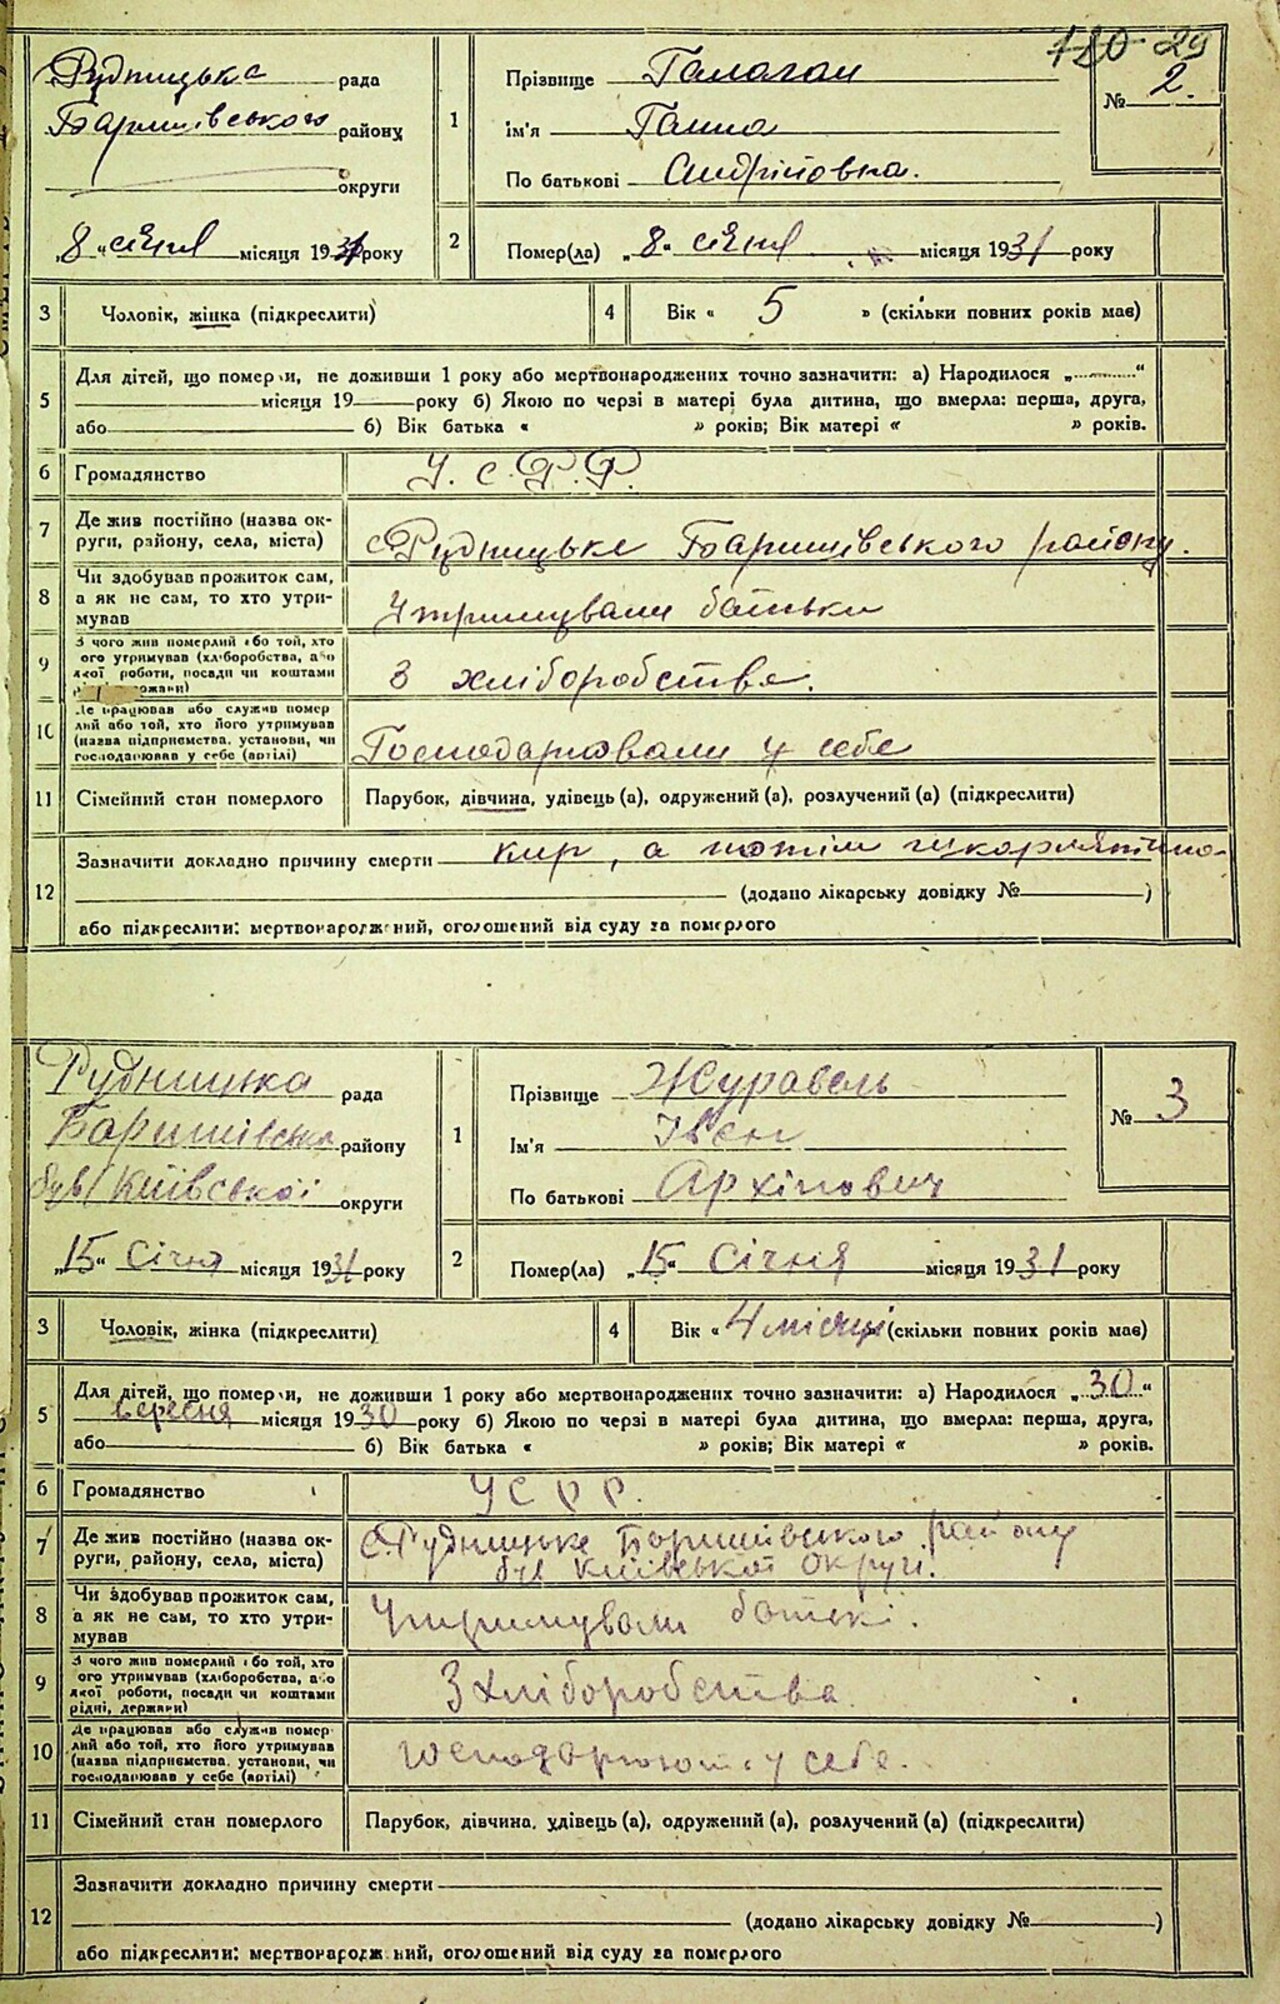 120 29
Рудницька рада
Баришівського району
округи
„8“ січня місяця 1931 року
1
Прізвище Галаган
Ім'я Ганна
По батькові Андріївна.
№ 2.
2
Помер(ла) „8“ січня місяця 1931 року
3 Чоловік, жінка (підкреслити)
4 Вік « 5 » (скільки повних років має)
5 Для дітей, що померли, не доживши 1 року або мертвонароджених точно зазначити: а) Народилося „ “
місяця 19 року б) Якою по черзі в матері була дитина, що вмерла: перша, друга,
або б) Вік батька « » років; Вік матері « » років.
6 Громадянство У.С.Р.Р.
7 Де жив постійно (назва ок-
руги, району, села, міста) с. Рудницьке Баришівського району.
8 Чи здобував прожиток сам,
а як не сам, то хто утри-
мував Утримували батьки
9 З чого жив померлий або той, хто
ого утримував (хліборобства, або
якої роботи, посади чи коштами
З хліборобства.
10 Де працював або служив помер
лий або той, хто його утримував
(назва підприємства, установи, чи
господарював у себе (артілі) Господарювали у себе
11 Сімейний стан померлого Парубок, дівчина, удівець (а), одружений (а), розлучений (а) (підкреслити)
12 Зазначити докладно причину смерти кир, а потім
(додано лікарську довідку № )
або підкреслити: мертвонароджений, оголошений від суду за померлого
Рудницька рада
Баришівська району
був Київської округи
„15“ Січня місяця 1931 року
1
Прізвище Журавель
Ім'я Іван
По батькові Архіпович
№ 3
2
Помер(ла) „15“ Січня місяця 1931 року
3 Чоловік, жінка (підкреслити)
4 Вік « 4 місяці (скільки повних років має)
5 Для дітей, що померли, не доживши 1 року або мертвонароджених точно зазначити: а) Народилося „30“
вересня місяця 1930 року б) Якою по черзі в матері була дитина, що вмерла: перша, друга,
або б) Вік батька « » років; Вік матері « » років.
6 Громадянство УСРР.
7 Де жив постійно (назва ок-
руги, району, села, міста) с. Рудницьке Баришівського району
був Київської округи.
8 Чи здобував прожиток сам,
а як не сам, то хто утри-
мував Утримували батькі.
9 З чого жив померлий або той, хто
ого утримував (хліборобства, або
якої роботи, посади чи коштами
рідні, держави) З хліборобства
10 Де працював або служив помер
лий або той, хто його утримував
(назва підприємства, установи, чи
господарював у себе (артілі) господарюють у себе.
11 Сімейний стан померлого Парубок, дівчина, удівець (а), одружений (а), розлучений (а) (підкреслити)
12 Зазначити докладно причину смерти
(додано лікарську довідку № )
або підкреслити: мертвонароджений, оголошений від суду за померлого